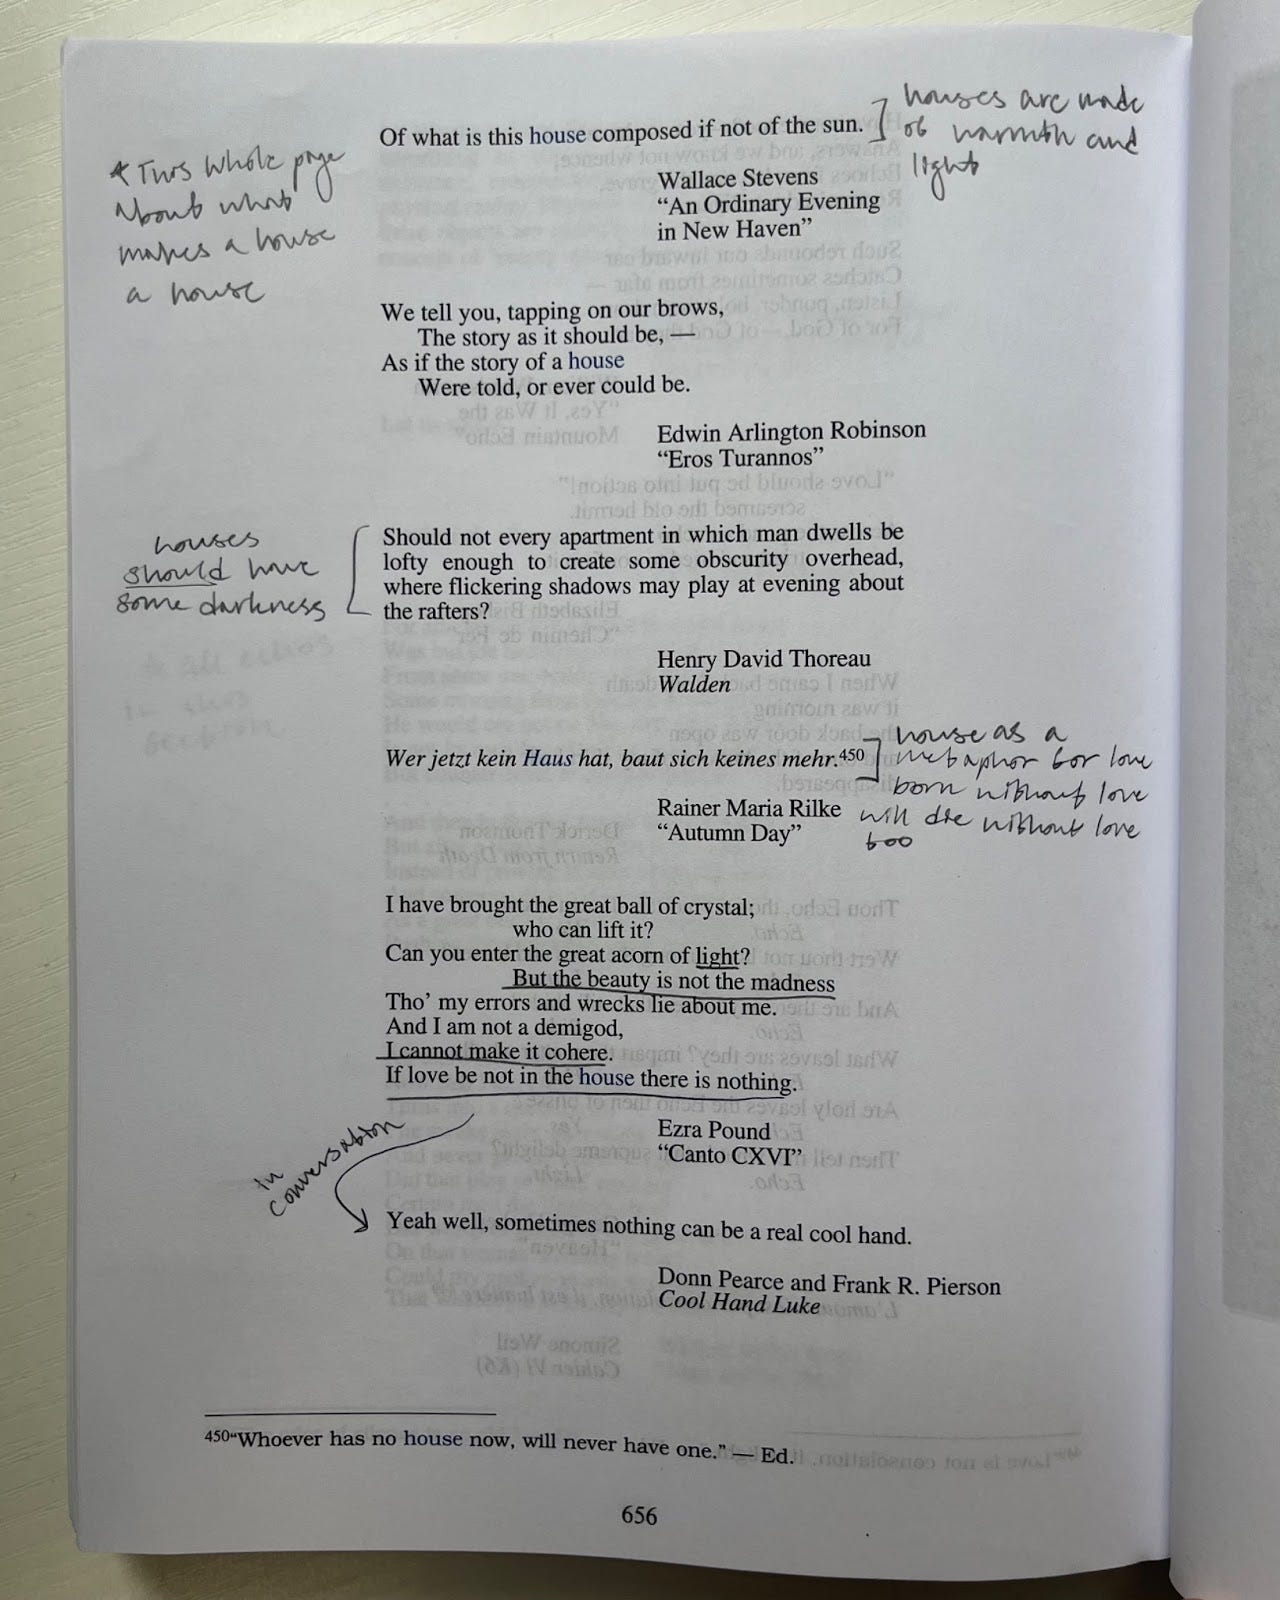 Of what is this house composed if not of the sun.
houses are made
of warmth and
light
* This whole page
about what
makes a house
a house
Wallace Stevens
“An Ordinary Evening
in New Haven”
We tell you, tapping on our brows,
The story as it should be, —
As if the story of a house
Were told, or ever could be.
Edwin Arlington Robinson
“Eros Turannos”
houses
should have
some darkness
Should not every apartment in which man dwells be
lofty enough to create some obscurity overhead,
where flickering shadows may play at evening about
the rafters?
* all echos
in this
section
Henry David Thoreau
Walden
Wer jetzt kein Haus hat, baut sich keines mehr.450
house as a
metaphor for love
born without love
will die without love
too
Rainer Maria Rilke
“Autumn Day”
I have brought the great ball of crystal;
who can lift it?
Can you enter the great acorn of light?
But the beauty is not the madness
Tho’ my errors and wrecks lie about me.
And I am not a demigod,
I cannot make it cohere.
If love be not in the house there is nothing.
Ezra Pound
“Canto CXVI”
in
conversation
Yeah well, sometimes nothing can be a real cool hand.
Donn Pearce and Frank R. Pierson
Cool Hand Luke
450“Whoever has no house now, will never have one.” — Ed.
656